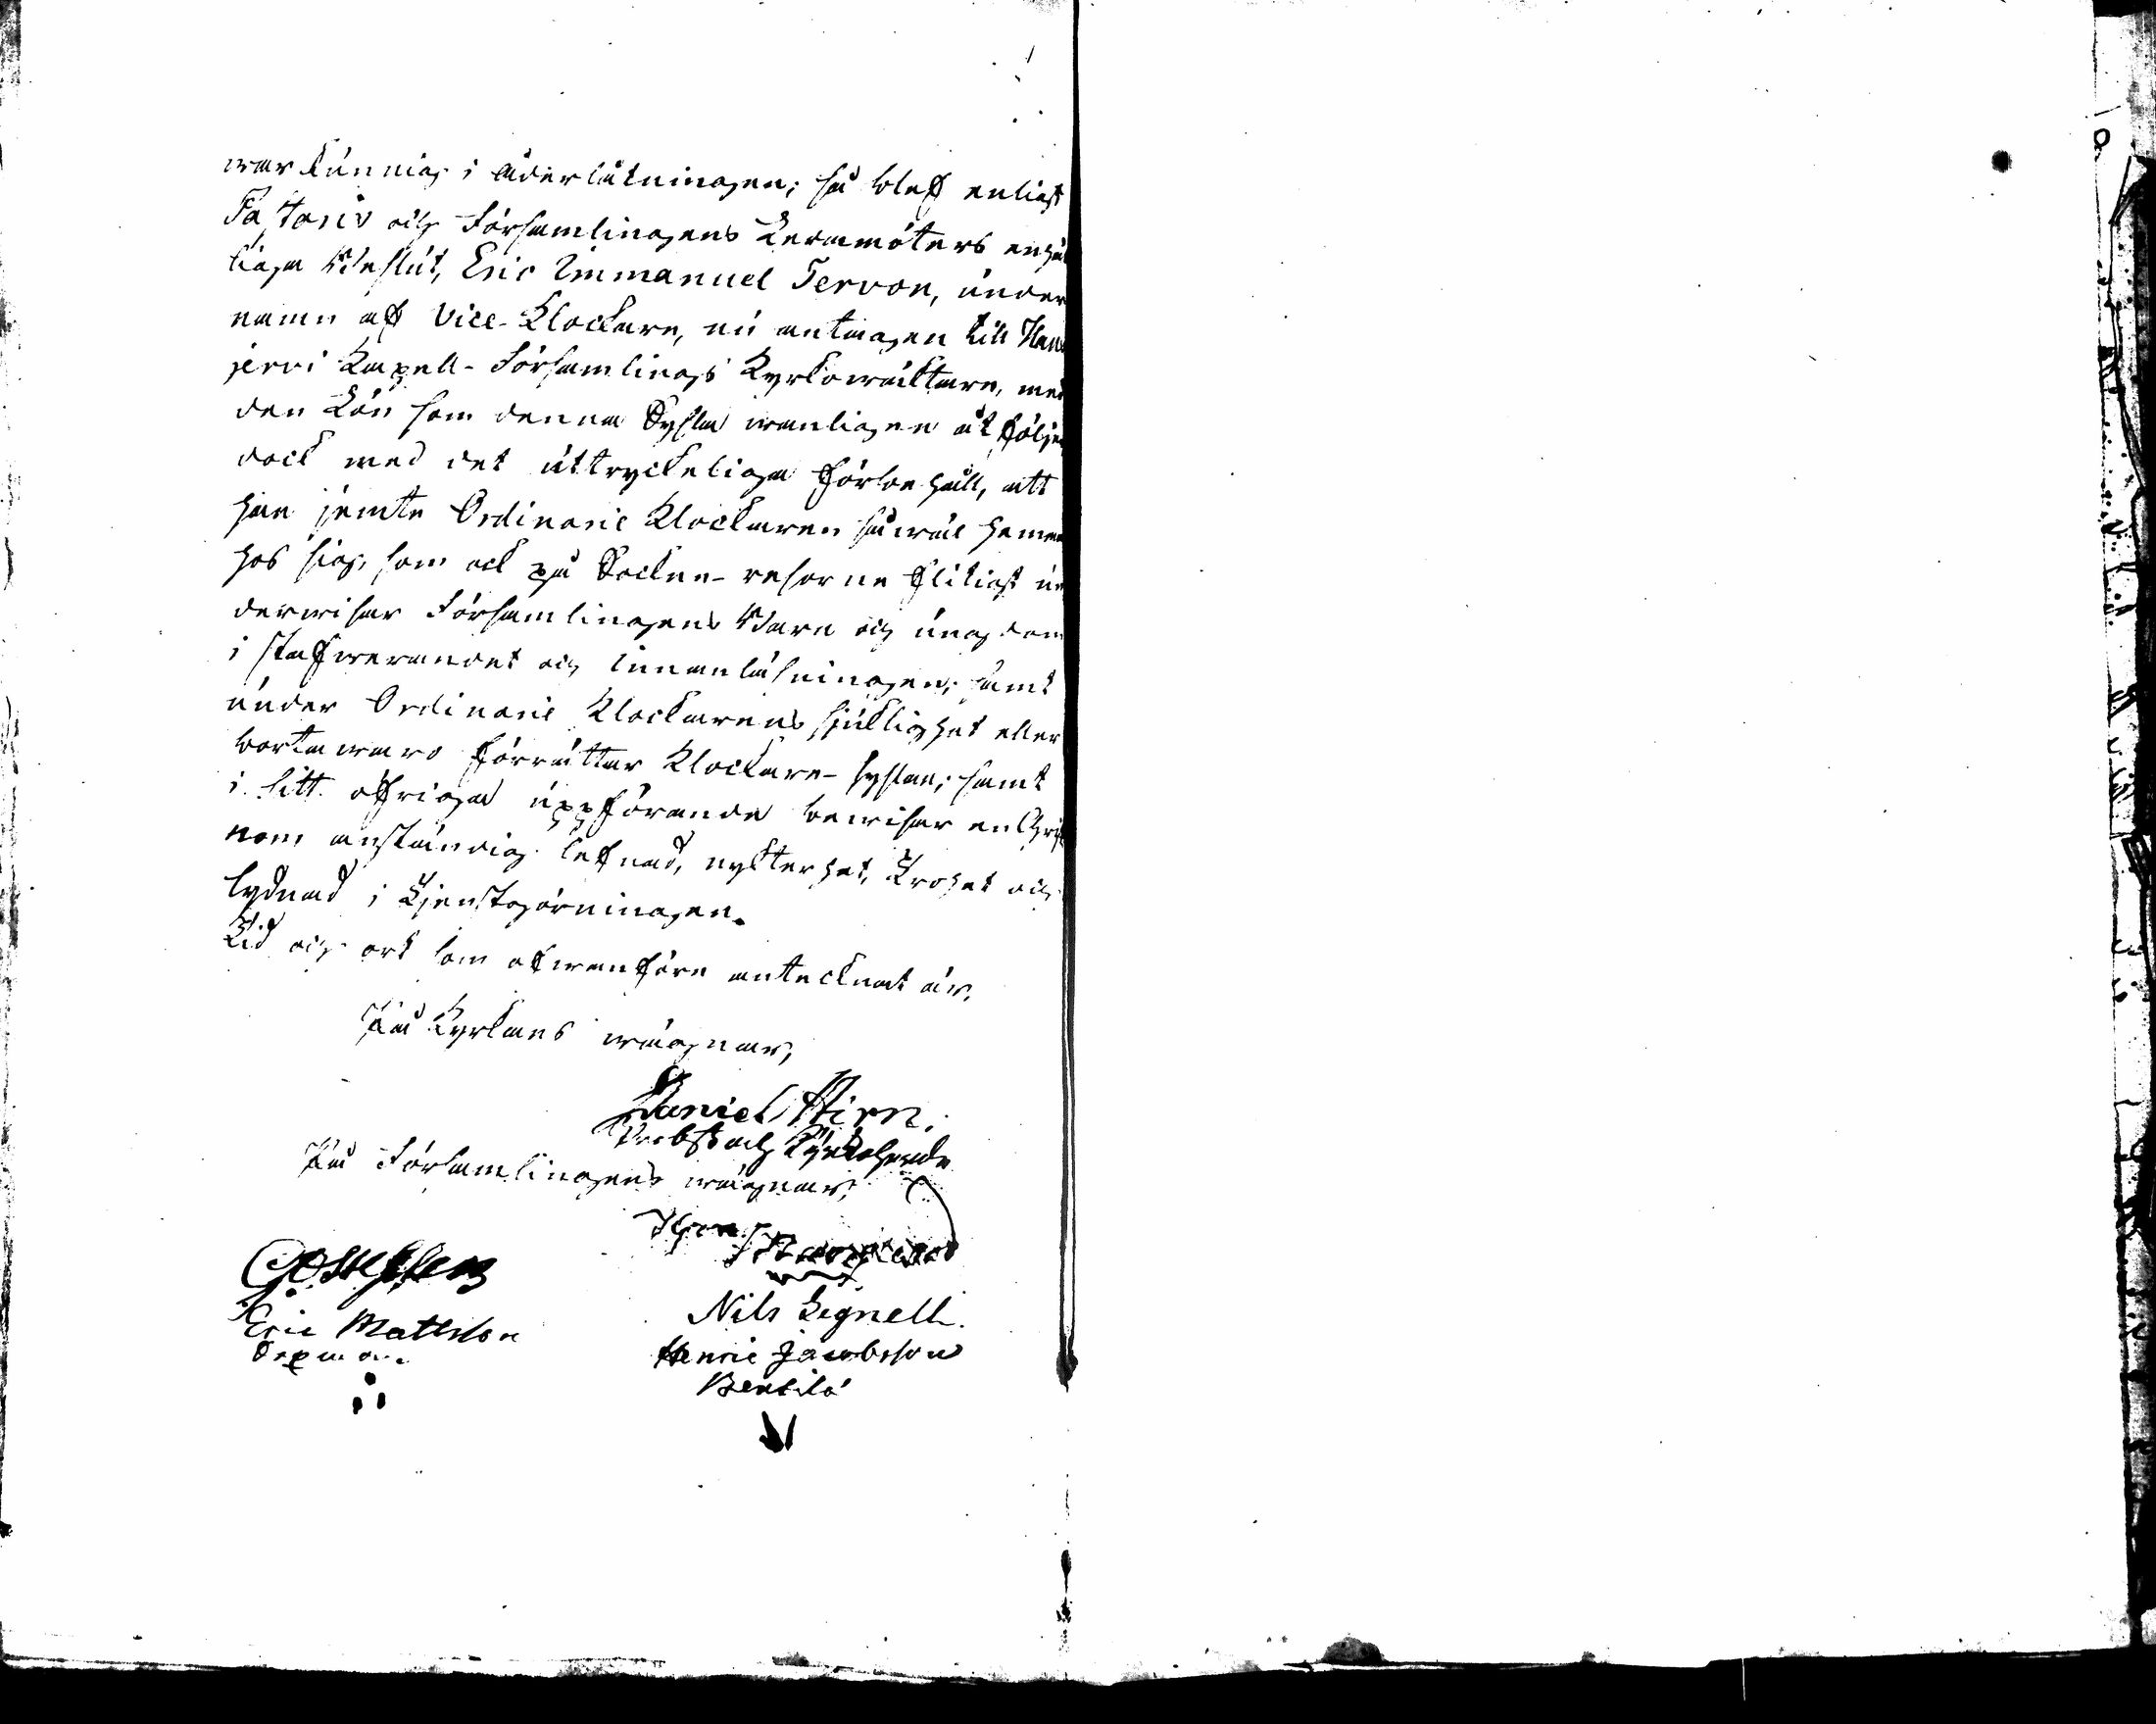 war kunnig i åderlåtningen; så blef enligt
Pastoris och Församlingens Ledamöters enhäl
liga Beslut, Eric Immanuel Tervon, under
namn af Vice-Klockare, nu antagen till
jervi Kapell-Församlings Kyrkowäktare, med
den Lön som denna Sysla wanligen åtföljer
dock med det uttryckeliga förbehåll, att
han jemte Ordinarie Klockaren såwäl hemma
hos sig, som ock på Socken-resorne flitigt un
derwisar Församlingens Barn och ungdom
i stafwerandet och innanläsningen; samt
under Ordinarie Klockarens sjuklighet eller
bortawaro förrättar Klockare-syslan; samt
i sitt öfriga uppförande bewisar en
nom anständig lefnad, nykterhet, trohet och
lydnad i tjenstgörningen.
Tid och ort som ofwanföre antecknat är.
På Kyrkans wägnar,
Daniel Hirn.
Probst och Kyrkoherde
På Församlingens wägnar,
Nils Legnell.
Eric Mattsson
Henric Jacobsson
Sexman.
Bentilä